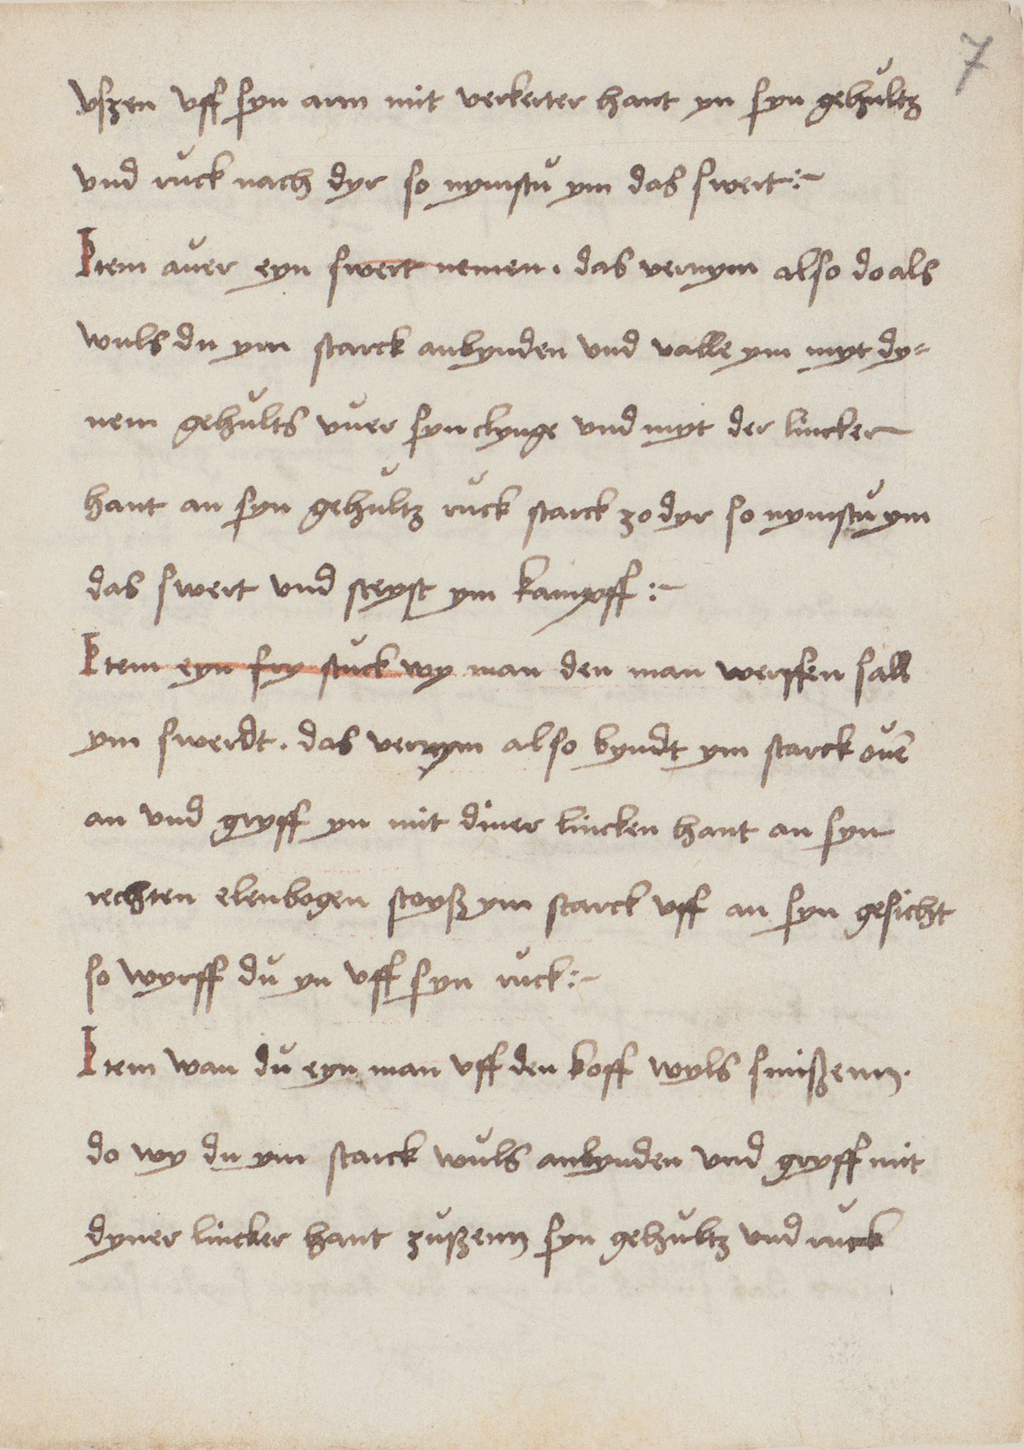 7
vszen vff syn arm mit verkerter hant yn syn gehultz
vnd ruck nach dyr so nymstu ym das swert :~
Item auer eyn swert nemen. das vernym also do als
wuls du ym starck anbynden vnd valle ym myt dy=
nem gehults vuer syn clynge vnd myt der lincker
hant an syn gehultz ruck starck zo dyr so nymstu ym
das swert vnd steyst ym kampff :~
Item eyn fry stuck wy man den man werffen sall
ym swerdt. das vernym also byndt ym starck ouen
an vnd gryff yn mit diner lincken hant an syn
rechten elenbogen stoyß ym starck vff an syn gesicht
so wyrff du yn vff syn ruck :~
Item wan du eyn man vff den koff wyls smißenn.
do wy du ym starck wuls anbynden vnd gryff mit
dyner lincker hant zußenn syn gehultz vnd ruck